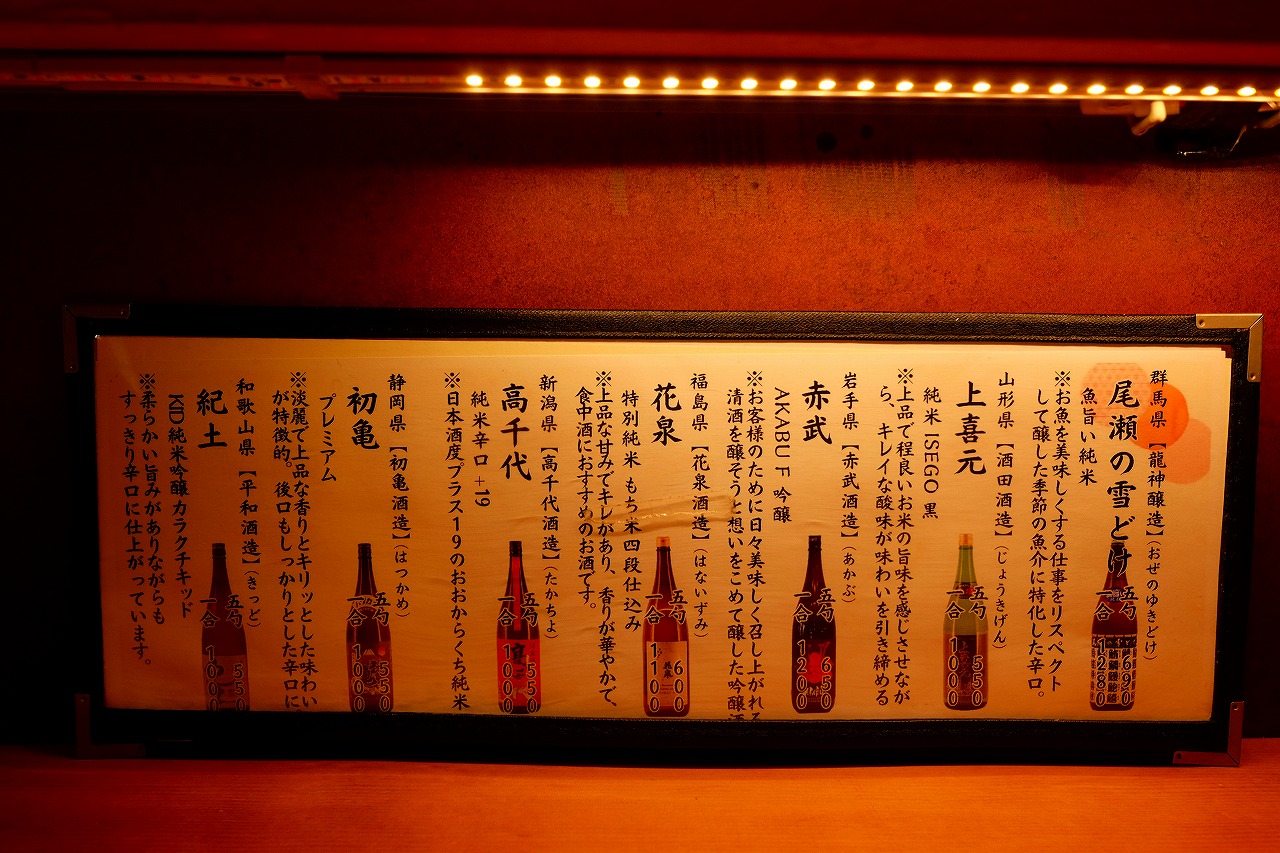 群馬県【龍神醸造】(おぜのゆきどけ)
尾瀬の雪どけ
魚旨い純米
※お魚を美味しくする仕事をリスペクト
して醸した季節の魚介に特化した辛口。
五勺 690
一合 1280
山形県【酒田酒造】(じょうきげん)
上喜元
純米 ISEGO 黒
※上品で程良いお米の旨味を感じさせなが
ら、キレイな酸味が味わいを引き締める
五勺 550
一合 1000
岩手県【赤武酒造】(あかぶ)
赤武
AKABU F 吟醸
※お客様のために日々美味しく召し上がれる
清酒を醸そうと想いをこめて醸した吟醸酒
五勺 650
一合 1200
福島県【花泉酒造】(はないずみ)
花泉
特別純米 もち米四段仕込み
※上品な甘みでキレがあり、香りが華やかで、
食中酒におすすめのお酒です。
五勺 600
一合 1110
新潟県【高千代酒造】(たかちよ)
高千代
純米辛口 +19
※日本酒度プラス19のおおからくち純米
五勺 550
一合 1000
静岡県【初亀酒造】(はつかめ)
初亀
プレミアム
※淡麗で上品な香りとキリッとした味わい
が特徴的。後口もしっかりとした辛口に
五勺 550
一合 1000
和歌山県【平和酒造】(きっど)
紀土
KID純米吟醸カラクチキッド
※柔らかい旨みがありながらも
すっきり辛口に仕上がっています。
五勺 550
一合 1000